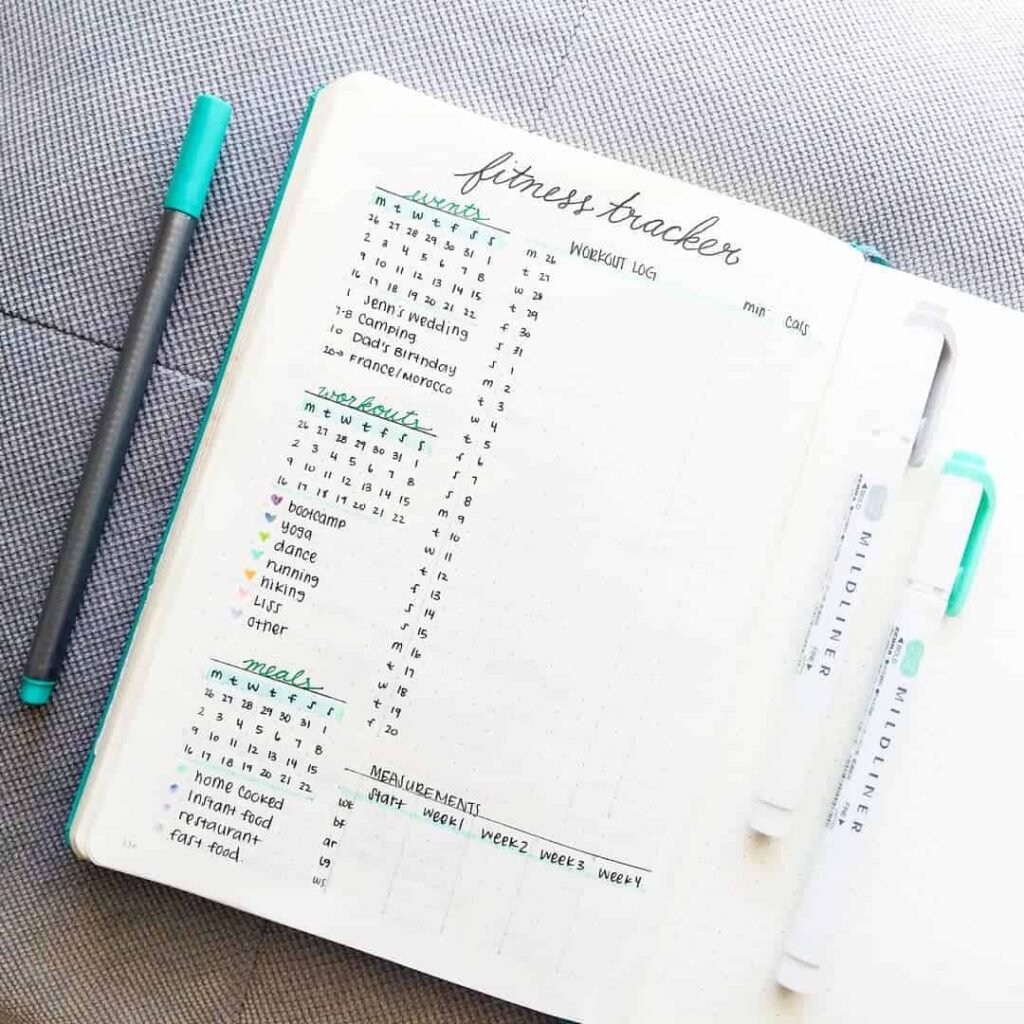 fitness tracker
events
m t w t f s s
26 27 28 29 30 31 1
2 3 4 5 6 7 8
9 10 11 12 13 14 15
16 17 18 19 20 21 22
1 Jenn's Wedding
7-8 Camping
10 Dad's Birthday
20→ France/Morocco
workouts
m t w t f s s
26 27 28 29 30 31 1
2 3 4 5 6 7 8
9 10 11 12 13 14 15
16 17 18 19 20 21 22
bootcamp
yoga
dance
running
hiking
LISS
other
meals
m t w t f s s
26 27 28 29 30 31 1
2 3 4 5 6 7 8
9 10 11 12 13 14 15
16 17 18 19 20 21 22
home cooked
instant food
restaurant
fast food
WORKOUT LOG
min cals
m 26
t 27
w 28
t 29
f 30
s 31
s 1
m 2
t 3
w 4
t 5
f 6
s 7
s 8
m 9
t 10
w 11
t 12
f 13
s 14
s 15
m 16
t 17
w 18
t 19
f 20
MEASUREMENTS
start week1 week2 week3 week4
wt
bf
ar
lg
ws
MILDLINER
MILDLINER